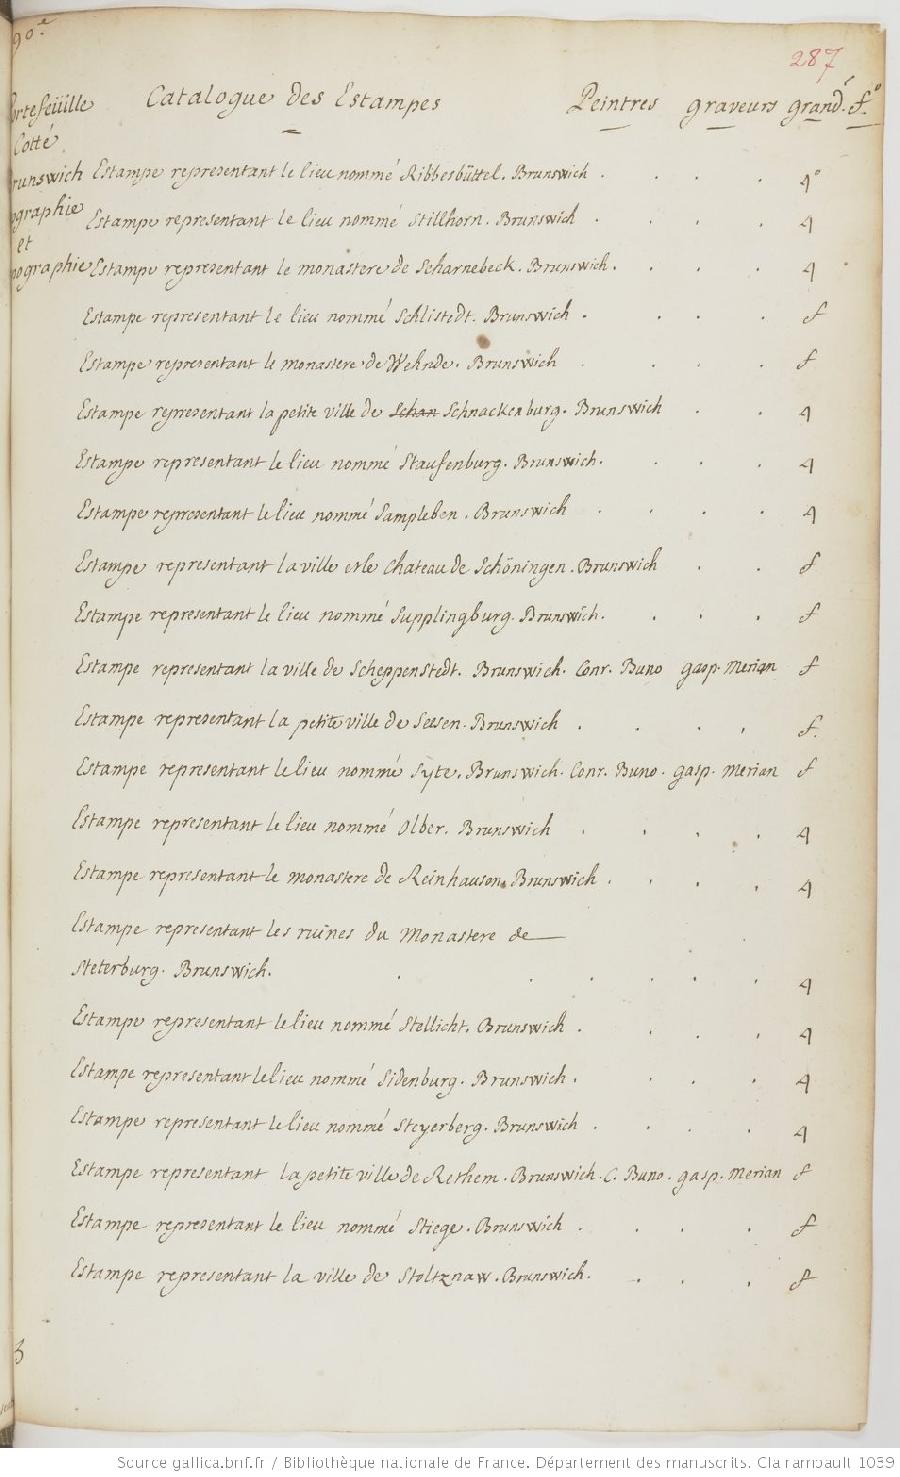 90.e
287
Portefeüille Catalogue Des Estampes Peintres graveurs grand.r f.o
Cotté
Brunswich Estampe representant le lieu nommé Ribbesbüttel. Brunswich . . . . 4°
ographie Estampe representant le lieu nommé Stillhorn. Brunswich . . . . 4
et
ographie Estampe representant le monastere de Scharnebeck. Brunswich. . . . 4
Estampe representant le lieu nommé Schlistedt. Brunswich . . . . f
Estampe representant le monastere de Wehnde. Brunswich . . . f
Estampe representant la petite ville de Schan Schnackenburg. Brunswich . . 4
Estampe representant le lieu nommé Staufenburg. Brunswich. . . . 4
Estampe representant le lieu nommé Sampleben. Brunswich . . . . 4
Estampe representant la ville et le chateau de Schöningen. Brunswich . . f
Estampe representant le lieu nommé Supplingburg. Brunswich. . . . f
Estampe representant la ville de Scheppenstedt. Brunswich. Conr. Buno gasp. Merian f
Estampe representant la petite ville de Seesen. Brunswich . . . . f.
Estampe representant le lieu nommé Syte. Brunswich. Conr. Buno. gasp. Merian f
Estampe representant le lieu nommé Olber. Brunswich . . . . 4
Estampe representant le monastere de Reinhausen. Brunswich . . . . 4
Estampe representant les ruïnes du Monastere de
Steterburg. Brunswich. . . . . . . 4
Estampe representant le lieu nommé Stellicht. Brunswich . . . . 4
Estampe representant le lieu nommé Sidenburg. Brunswich. . . . 4
Estampe representant le lieu nommé Steyerberg. Brunswich . . . . 4
Estampe representant la petite ville de Rethem. Brunswich. C. Buno. gasp. Merian f
Estampe representant le lieu nommé Stiege. Brunswich . . . . f
Estampe representant la ville de Stoltznaw. Brunswich. . . . f
3
Source gallica.bnf.fr / Bibliothèque nationale de France. Département des manuscrits. Clairambault 1039